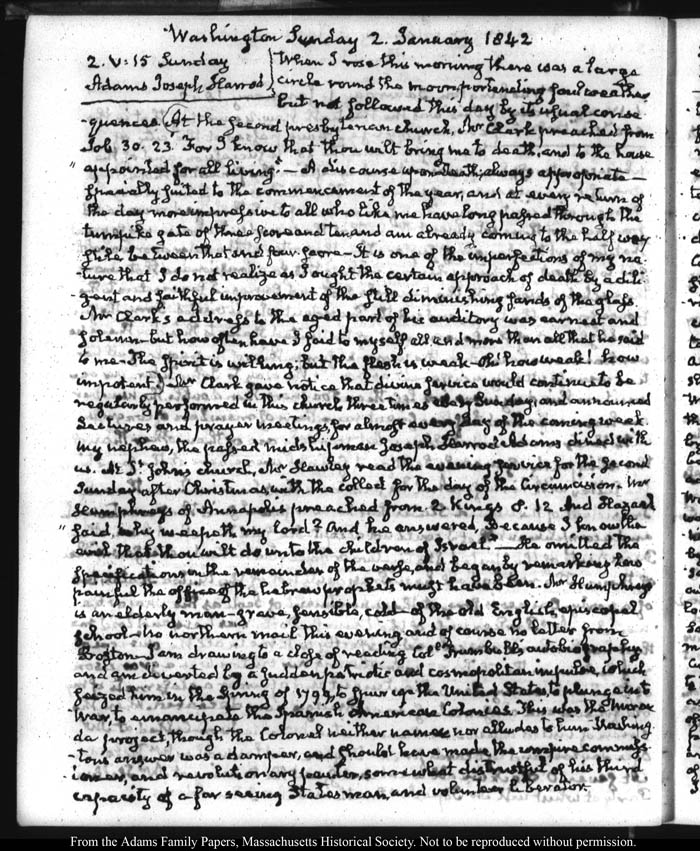 Washington Sunday 2. January 1842
2. V:15 Sunday
Adams Joseph Harrod
When I rose this morning there was a large
circle round the moon, portending foul weather
but not followed this day by its usual conse
-quences. At the second presbyterian church, Mr Clark preached from
Job. 30. 23. For I know that thou wilt bring me to death, and to the house
" appointed for all living." — A discourse upon death; always appropriate —
specially suited to the commencement of the year, and at every return of
the day more impressive to all who like me have long passed through the
turnpike gate of three score and ten and am already coming to the half way
stile between that and four score — It is one of the imperfections of my na
-ture that I do not realize as I ought the certain approach of death by a dili
-gent and faithful improvement of the still diminishing sands of the glass.
Mr Clark's address to the aged part of his auditory was earnest and
solemn — but how often have I said to myself all and more than all that he said
to me — The Spirit is willing; but the flesh is weak — Oh! how weak! how
impotent.) — Mr Clark gave notice that divine service would continue to be
regularly performed in this church three times every Sunday, and announced
lectures and prayer meetings, for almost every day of the coming week.
My nephew, the passed midshipman Joseph Harrod Adams dined with
us. At St. John's church, Mr Hawley read the evening service for the second
Sunday after Christmas, with the collect for the day of the Circumcision. Mr
Humphreys of Annapolis preached from 2 Kings 8. 12 And Hazael
" said, why weepeth my lord? And he answered, Because I know the
evil that thou wilt do unto the children of Israel" — He omitted the
specifications in the remainder of the verse, and began by remarking how
painful the office of the hebrew prophets must have been. Mr Humphreys
is an elderly man — grave, sensible, cold — of the old English, episcopal
school — no northern mail this evening and of course no letter from
Boston. I am drawing to a close of reading Col. Trumbull's autobiography
and am diverted by a sudden patriotic and cosmopolitan impulse, which
seized him in the Spring of 1799, to spur up the United States, to plunge into
War, to emancipate the Spanish American Colonies. This was the Miran
da project, though the Colonel neither names nor alludes to him. Washing
-ton's answer was a damper, and should have made the umpire commis
-sioner, and revolutionary painter, somewhat distrustful of his third
capacity of a far seeing Statesman, and volunteer liberator.
From the Adams Family Papers, Massachusetts Historical Society. Not to be reproduced without permission.